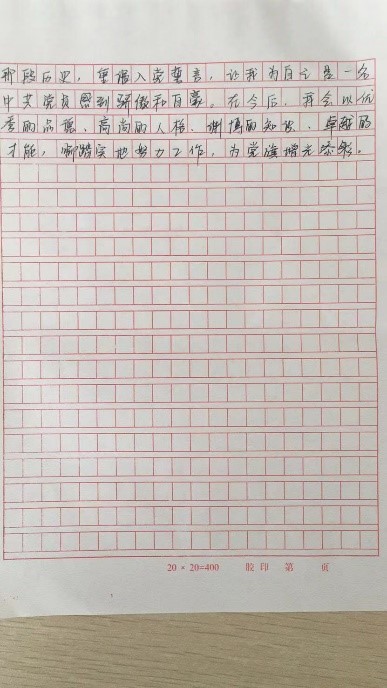 那段历史，重温入党誓言，让我为自己是一名
中共党员感到骄傲和自豪。在今后，我会以优
秀的品德、高尚的人格、渊博的知识、卓越的
才能，脚踏实地努力工作，为党旗增光添彩。
20×20=400 胶印 第 页